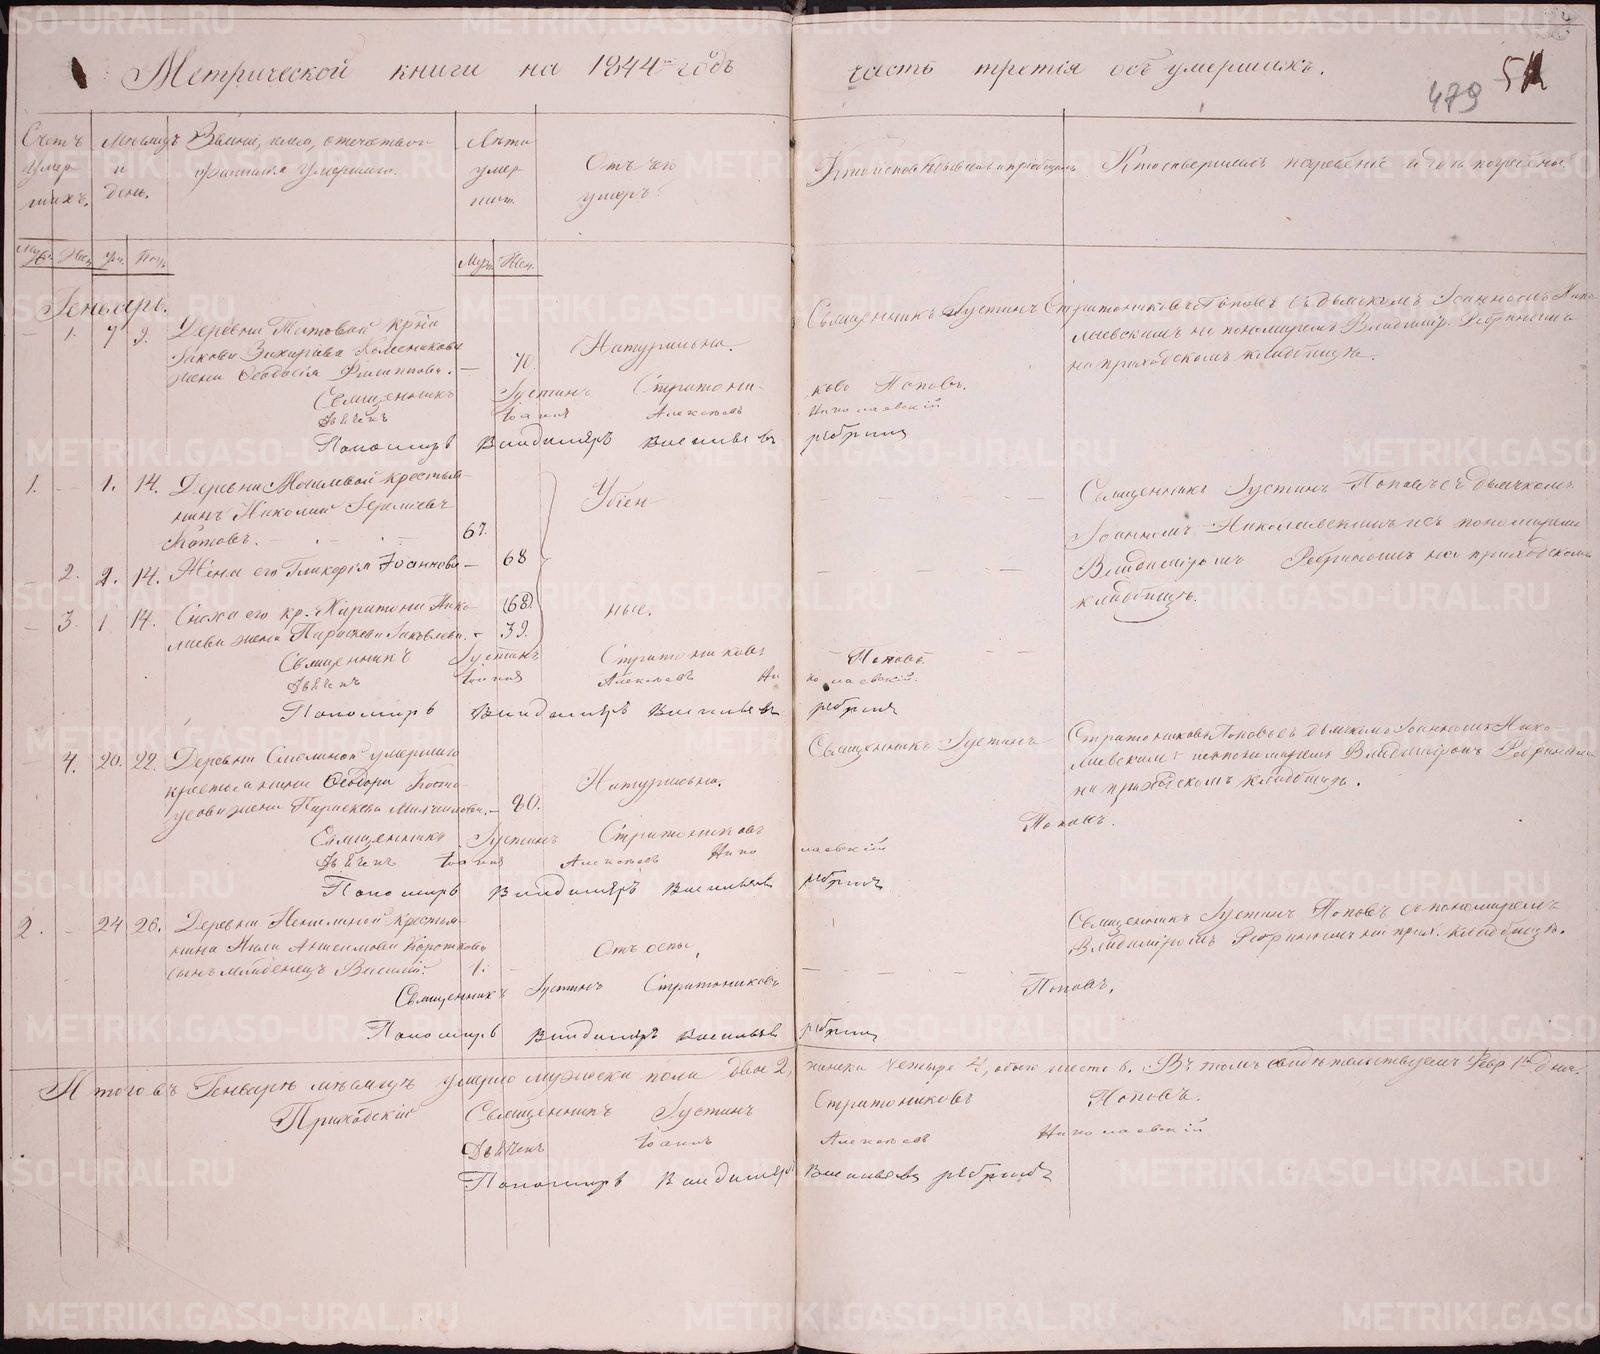 Метрической книги на 1844-й годъ часть третія объ умершихъ.
479
Счетъ умершихъ.
Мѣсяцъ и день.
Званіе, имя, отчество и фамилія умершаго.
Лѣта умершаго.
Отъ чего умеръ?
Кто исповѣдывалъ и пріобщалъ
Кто совершалъ погребеніе и гдѣ погребены
Муж. Жен. Ум. Погр. Муж. Жен.
Генварь.
1. 7 9. Деревни Титовой кр-на
Іакова Захарова
жена Ѳеодосія Филиппова. — 70.
Натурально.
Священникъ Іустинъ Стратониковъ Поповъ съ дьячкомъ Іоанномъ Нико
лаевскимъ и пономаремъ Владимір. Ребринымъ
на приходскомъ кладбищѣ.
Священникъ Іустинъ Стратони- ковъ Поповъ.
Дьячекъ Іоаннъ Алексѣевъ Николаевскій
Пономарь Владимиръ Васильевъ ребринъ
1. — 1. 14. Деревни крестья-
нинъ Николай
Котовъ. — 67.
Убіен
— 2. 1. 14. Жена его Гликерія Іоаннова — 68
— 3. 1 14. Сноха его кр. Харитона Нико-
лаева жена Параскева Іаковлева. — (68)
39.
ные.
Священникъ Іустинъ Поповъ съ дьячкомъ
Іоанномъ Николаевскимъ и съ пономаремъ
Владиміромъ Ребринымъ на приходскомъ
кладбищѣ.
Священникъ Іустинъ Стратониковъ Поповъ
Дьячекъ Іоаннъ Алексѣевъ Николаевскій.
Пономарь Владимиръ Васильевъ ребринъ
4. 20. 22. Деревни Смолиной умершаго
крестьянина Ѳеодора
жена Параскева — 80.
Натурально.
Священникъ Іустинъ Стратониковъ Поповъ съ дьячкомъ Іоанномъ Нико-
лаевскимъ и пономаремъ Владиміромъ Ребринымъ
на приходскомъ кладбищѣ.
Священникъ Іустинъ Стратониковъ Поповъ.
Дьячекъ Іоаннъ Алексѣевъ Николаевскій
Пономарь Владимиръ Васильевъ ребринъ
2. — 24 26. Деревни крестья-
нина
сынъ младенецъ Василій. 1.
Отъ оспы,
Священникъ Іустинъ Поповъ съ пономаремъ
Владиміромъ Ребринымъ на прих. кладбищѣ.
Священникъ Іустинъ Стратониковъ Поповъ.
Пономарь Владимиръ Васильевъ ребринъ
Итого въ Генварѣ мѣсяцѣ умерло мужеска пола двое 2, женска четыре 4, обоего шесть 6. Въ томъ свидѣтельствуемъ Февр 1 дня.
Приходскій Священникъ Іустинъ Стратониковъ Поповъ.
Дьячекъ Іоаннъ Алексѣевъ Николаевскій
Пономарь Владимиръ Васильевъ ребринъ
METRIKI.GASO-URAL.RU